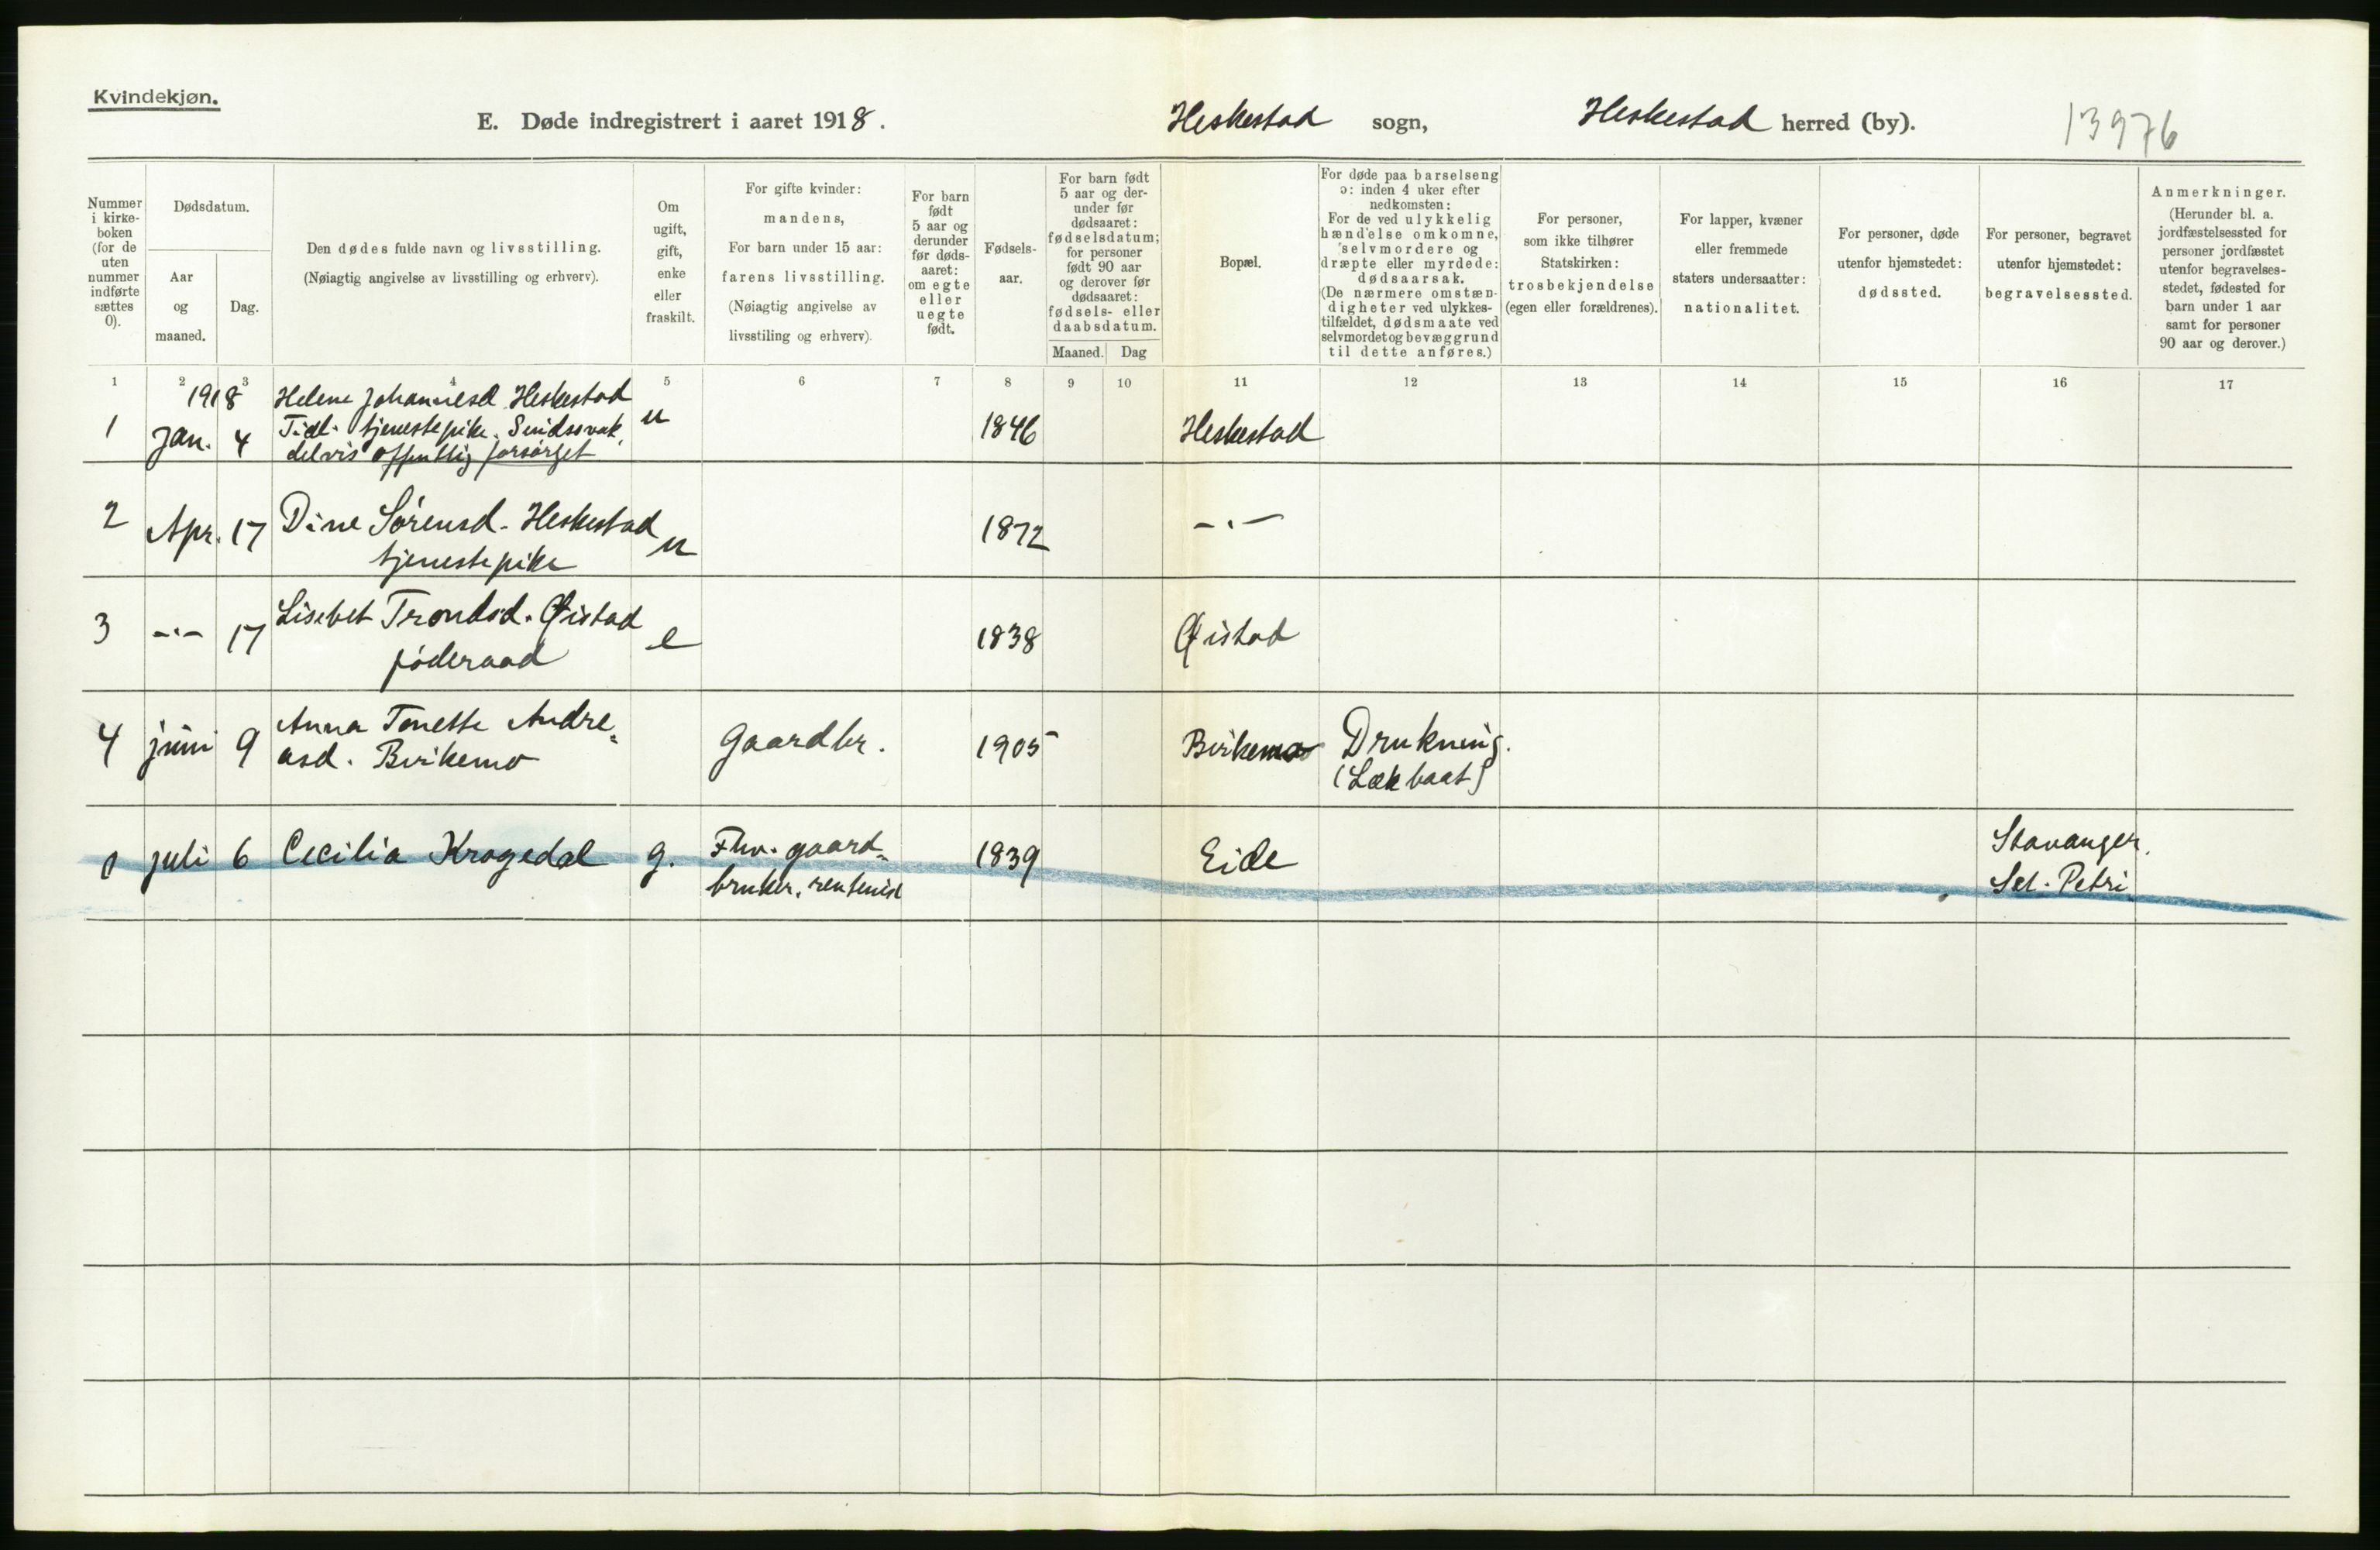 Kvindekjøn.
E. Døde indregistrert i aaret 1918.
Heskestad sogn,
Heskestad herred (by).
13976
Nummer
i kirke-
boken
(for de
uten
nummer
indførte
sættes
0).
Dødsdatum.
Aar
og
maaned.
Dag.
Den dødes fulde navn og livsstilling.
(Nøiagtig angivelse av livsstilling og erhverv).
Om
ugift,
gift,
enke
eller
fraskilt.
For gifte kvinder:
mandens,
For barn under 15 aar:
farens livsstilling.
(Nøiagtig angivelse av
livsstiling og erhverv).
For barn
født
5 aar og
derunder
før døds-
aaret:
om egte
eller
uegte
født.
Fødsels-
aar.
For barn født
5 aar og der-
under før
dødsaaret:
fødselsdatum;
for personer
født 90 aar
og derover før
dødsaaret:
fødsels- eller
daabsdatum.
Maaned. Dag
Bopæl.
For døde paa barselseng
ɔ: inden 4 uker efter
nedkomsten:
For de ved ulykkelig
hændelse omkomne,
selvmordere og
dræpte eller myrdede:
dødsaarsak.
(De nærmere omstæn-
digheter ved ulykkes-
tilfældet, dødsmaate ved
selvmordet og bevæggrund
til dette anføres.)
For personer,
som ikke tilhører
Statskirken:
trosbekjendelse
(egen eller forældrenes).
For lapper, kvæner
eller fremmede
staters undersaatter:
nationalitet.
For personer, døde
utenfor hjemstedet:
dødssted.
For personer, begravet
utenfor hjemstedet:
begravelsessted.
Anmerkninger.
(Herunder bl. a.
jordfæstelsessted for
personer jordfæstet
utenfor begravelses-
stedet, fødested for
barn under 1 aar
samt for personer
90 aar og derover.)
1 2 3 4 5 6 7 8 9 10 11 12 13 14 15 16 17
1918 Helene Johannesd. Heskestad
1 Jan. 4 Tidl. tjenestepike. Sindssvak, u 1846 Heskestad
delvis offentlig forsørget
2 Apr. 17 Dine Sørensd. Heskestad u 1872 -"-
tjenestepike
3 -"- 17 Lisebet Trondsd. Øistad e 1838 Øistad
føderaad
4 juni 9 Anna Tonette Andre- Gaardbr. 1905 Birkemo Drukning.
asd. Birkemo (Læk baat)
0 juli 6 Cecilia Kragedal g. Fhv. gaard- 1839 Eide Stavanger.
bruker, rentenist Sct. Petri